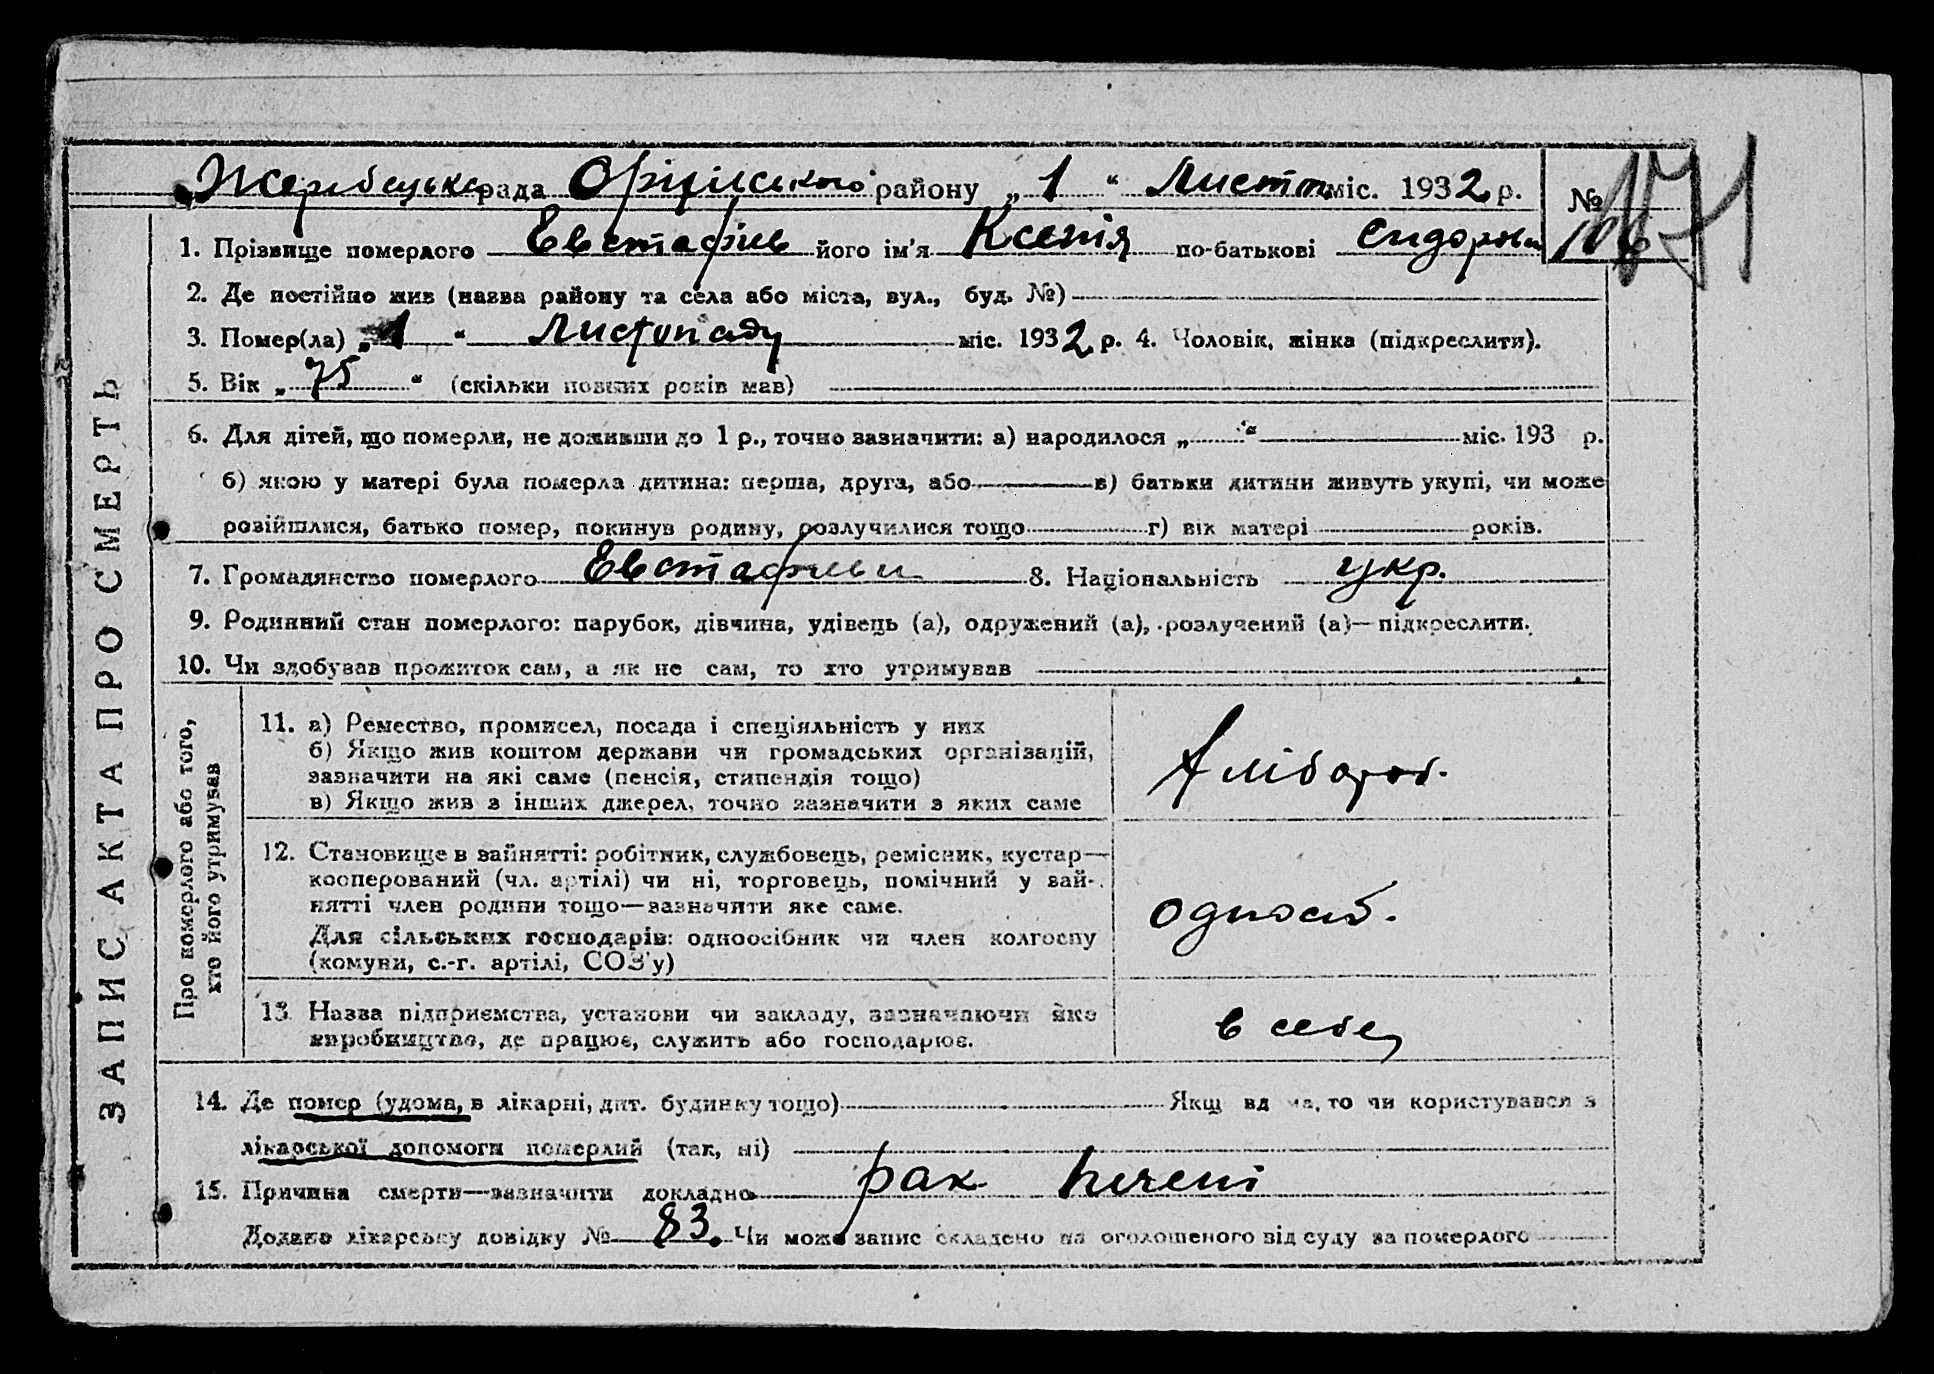 рада Оріцлського району „ 1 “ Листп. міс. 1932 р. №
171
1. Прізвище померлого Евстафієв його ім'я Ксенія по-батькові Сидоровн
2. Де постійно жив (назва району та села або міста, вул., буд. №)
3. Помер(ла) „ 1 “ Листопаду міс. 1932 р. 4. Чоловік, жінка (підкреслити).
5. Вік „ 75 “ (скільки повних років мав)
6. Для дітей, що померли, не доживши до 1 р., точно зазначити: а) народилося „ “ міс. 193 р.
б) якою у матері була померла дитина: перша, друга, або в) батьки дитини живуть укупі, чи може
розійшлися, батько помер, покинув родину, розлучилися тощо г) вік матері років.
7. Громадянство померлого 8. Національність укр.
9. Родинний стан померлого: парубок, дівчина, удівець (а), одружений (а), розлучений (а)—підкреслити.
10. Чи здобував прожиток сам, а як не сам, то хто утримував
ЗАПИС АКТА ПРО СМЕРТЬ
Про померлого або того,
хто його утримував
11. а) Ремество, промисел, посада і спеціяльність у них
б) Якщо жив коштом держави чи громадських організацій,
зазначити на які саме (пенсія, стипендія тощо)
в) Якщо жив з інших джерел, точно зазначити з яких саме
хлібороб.
12. Становище в зайнятті: робітник, службовець, ремісник, кустар—
кооперований (чл. артілі) чи ні, торговець, помічний у зай-
нятті член родини тощо—зазначити яке саме.
Для сільських господарів: одноосібник чи член колгоспу
(комуни, с.-г. артілі, СОЗ'у)
одноосіб.
13. Назва підприємства, установи чи закладу, зазначаючи яке
виробництво, де працює, служить або господарює.
в себе
14. Де помер (удома, в лікарні, дит. будинку тощо) Якщ вд ма, то чи користувався з
лікарської допомоги померлий (так, ні)
15. Причина смерти—зазначити докладно рак печені
Додано лікарську довідку № 83. Чи може запис складено на оголошеного від суду за померлого